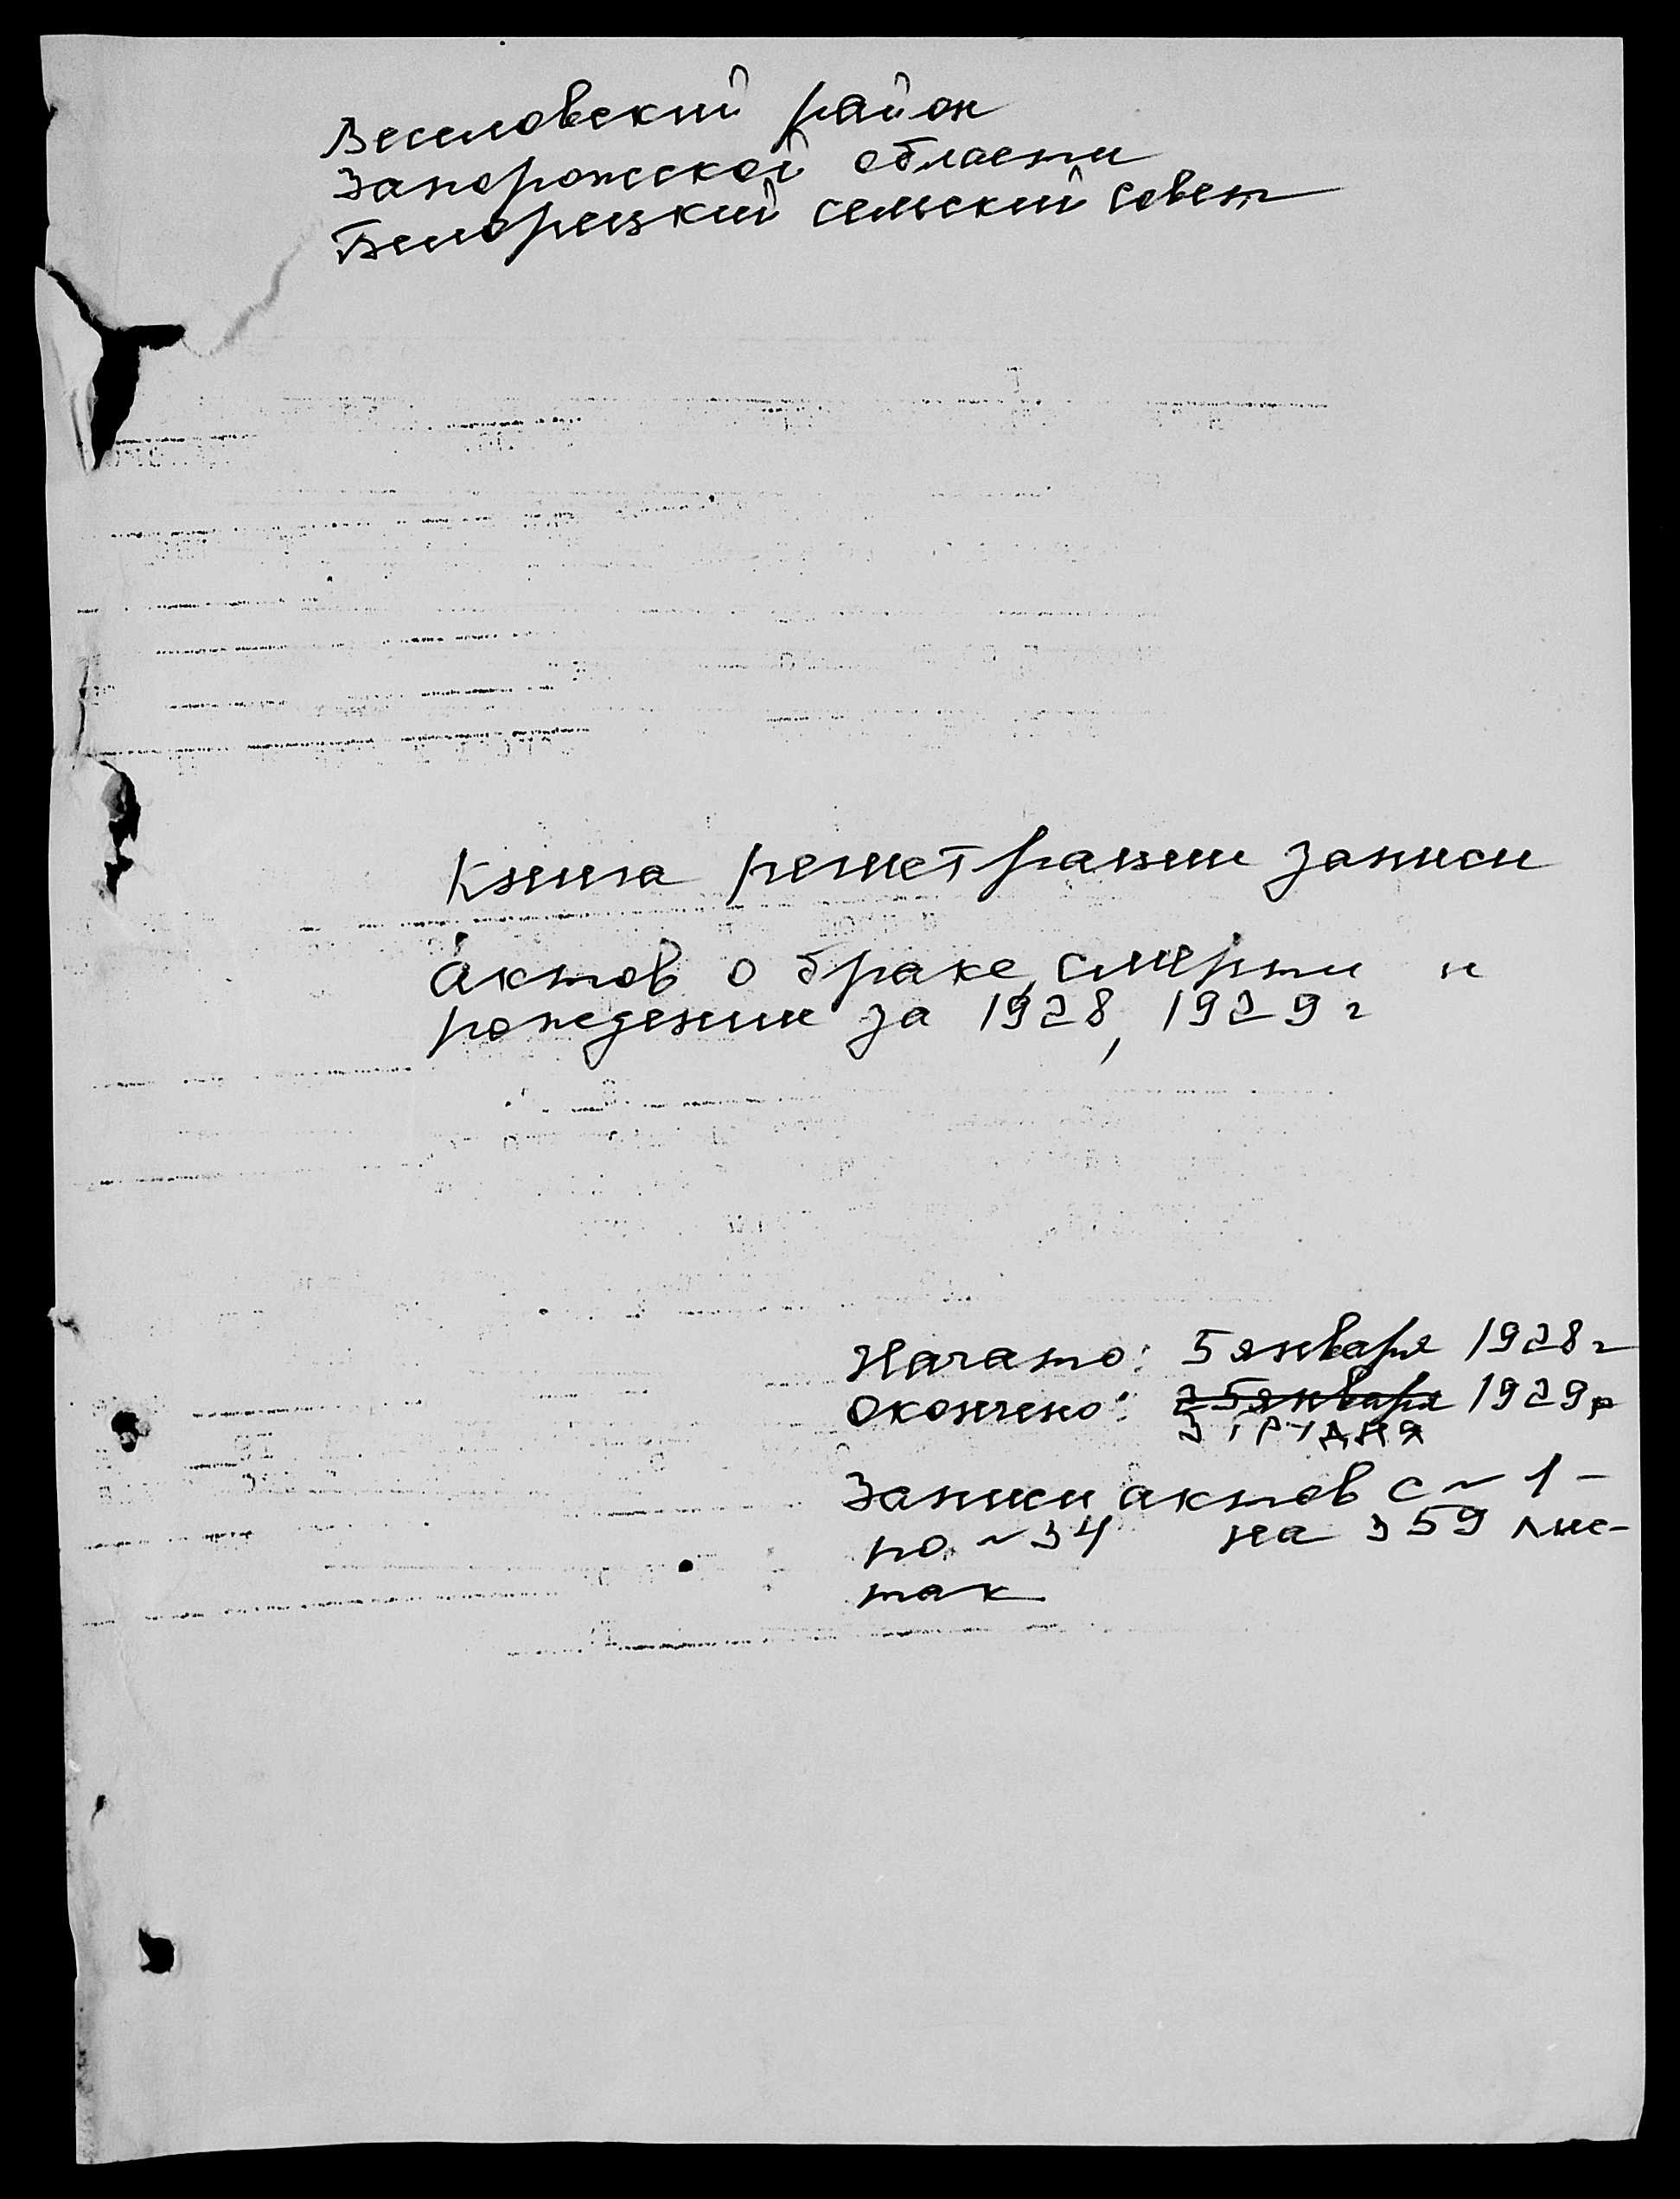 Веселовский район
Запорожской области
Белорецкий сельский совет
Книга регистрации записи
актов о браке, смерти и
рождении за 1928, 1929 г
Начато: 5 января 1928 г
Окончено: 25 января 1929 р
3 ГРУДНЯ
Записи актов с ~ 1 –
по ~ 34 на 359 лис-
тах